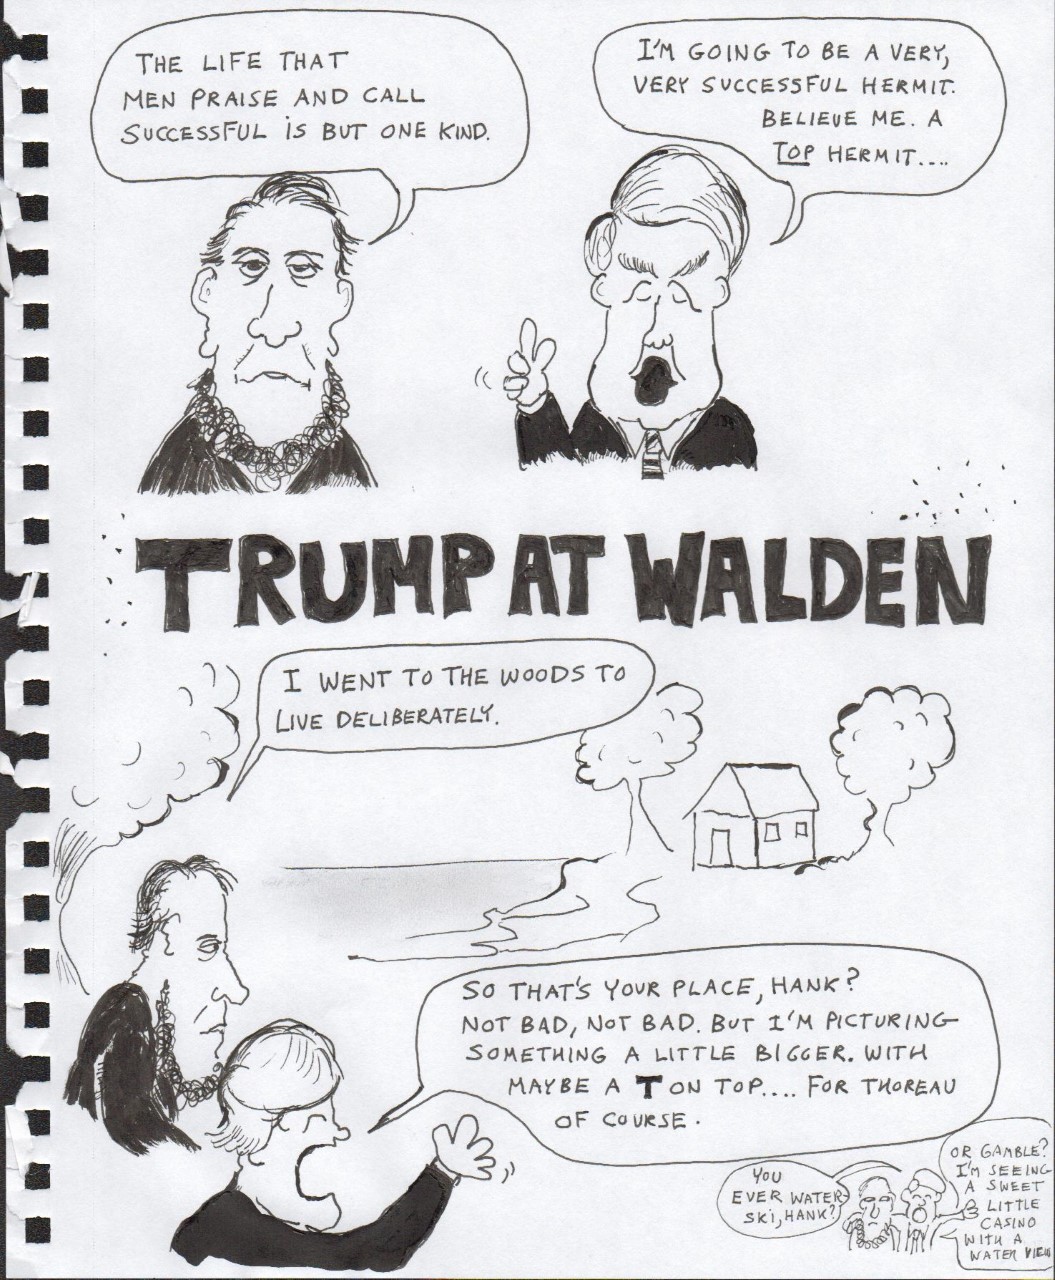 THE LIFE THAT
MEN PRAISE AND CALL
SUCCESSFUL IS BUT ONE KIND.
I'M GOING TO BE A VERY,
VERY SUCCESSFUL HERMIT.
BELIEVE ME. A
TOP HERMIT....
TRUMP AT WALDEN
I WENT TO THE WOODS TO
LIVE DELIBERATELY.
SO THAT'S YOUR PLACE, HANK?
NOT BAD, NOT BAD. BUT I'M PICTURING
SOMETHING A LITTLE BIGGER. WITH
MAYBE A T ON TOP.... FOR THOREAU
OF COURSE.
YOU
EVER WATER
SKI, HANK?
OR GAMBLE?
I'M SEEING
A SWEET
LITTLE
CASINO
WITH A
WATER VIEW